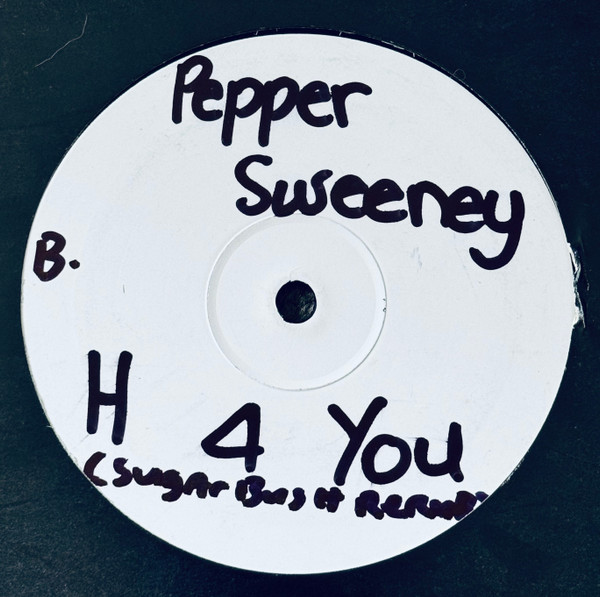 Pepper
Sweeney
B.
H 4 You
(Sugar Bush